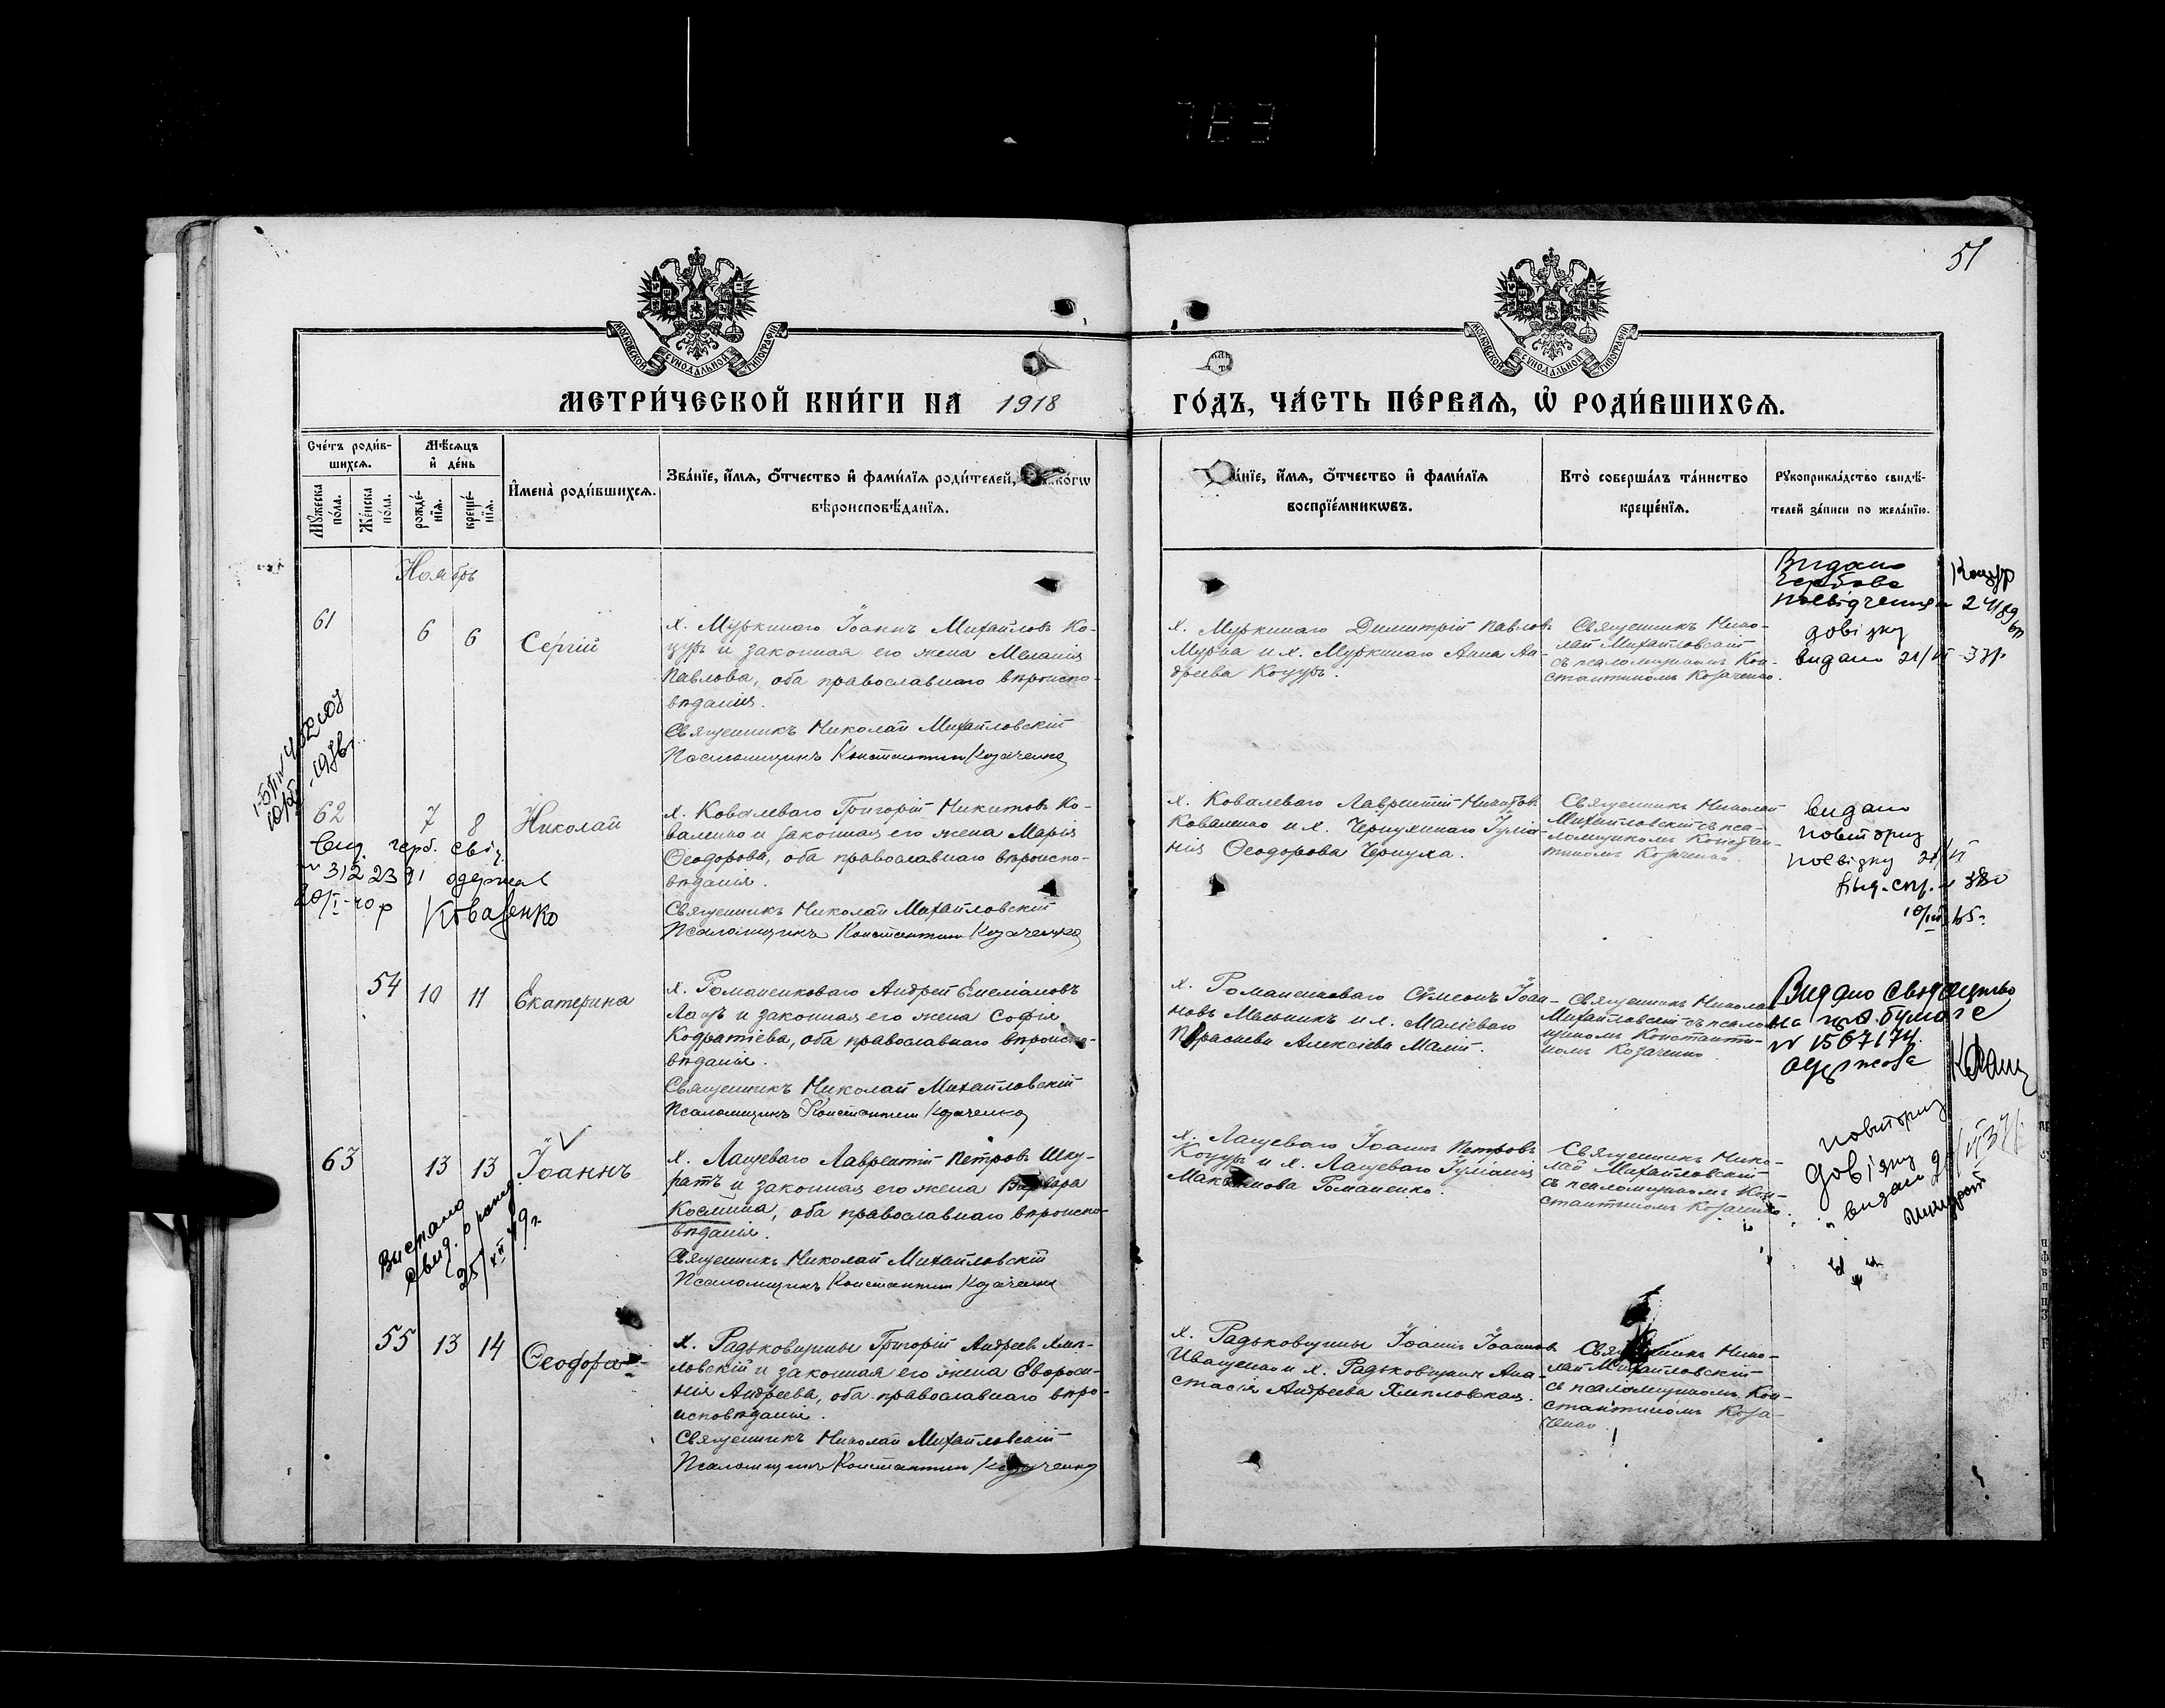 51
МОСКОВСКОЙ СѴНОДАЛЬНОЙ ТИПОГРАФІИ
МОСКОВСКОЙ СѴНОДАЛЬНОЙ ТИПОГРАФІИ
МЕТРИ́ЧЕСКОЙ КНИ́ГИ НА 1918
ГО́ДЪ, ЧА́СТЬ ПЕ́РВАЯ, Ѡ҆ РОДИ́ВШИХСЯ.
Сче́тъ роди́в-
шихся.
Мѣ́сяцъ
и҆ де́нь
Мꙋ́жеска
по́ла.
Же́нска
по́ла.
рожде́-
нїя.
креще́-
нїя.
И҆мена̀ роди́вшихся.
Зва́нїе, и҆́мя, ѻ҆́тчество и҆ фами́лїя роди́телей,
вѣроисповѣ́данїя.
и҆́мя, ѻ҆́тчество и҆ фами́лїя
воспрїе́мникѡвъ.
Кто̀ соверша́лъ та́инство
креще́нїя.
Рꙋкоприкла́дство свидѣ́-
телей за́писи по жела́нїю.
Ноябрь
61
6
6
Сергій
х. Муркинаго Іоаннъ Михайловъ Ко-
цуръ и законная его жена Меланія
Павлова, оба православнаго вѣроиспо-
вѣданія.
Священникъ Николай Михайловскій
Псаломщикъ Константин Козаченко
х. Муркинаго Димитрій Павловъ
Мурха и х. Муркинаго Анна Ан-
дреева Коцуръ.
Священникъ Нико-
лай Михайловскій
съ псаломщикомъ Кон-
стантиномъ Козаченко.
Видано
посвідчення
довідку
видано
62
7
8
Николай
х. Ковалеваго Григорій Никитовъ Ко-
валенко и законная его жена Марія
Ѳеодорова, оба православнаго вѣроиспо-
вѣданія.
Священникъ Николай Михайловскій
Псаломщикъ Константин Козаченко
х. Ковалеваго Лаврентій Никитовъ
Коваленко и х. Чернухинаго Іуліа-
нія Ѳеодорова Чернуха.
Священникъ Николай
Михайловскій съ пса-
ломщикомъ Констан-
тиномъ Козаченко.
видано
повторну
Вид. герб. свід.
одержал
Коваленко
54
10
11
Екатерина
х. Романенковаго Андрей Емеліановъ
Лащъ и законная его жена Софія
Кодратіева, оба православнаго вѣроиспо-
вѣданія.
Священникъ Николай Михайловскій
Псаломщикъ Константин Козаченко
х. Романенковаго Сѵмеонъ Іоан-
новъ Мельникъ и х. Маліеваго
Параскева Алексіева Малій.
Священникъ Николай
Михайловскій съ псалом-
щикомъ Константи-
номъ Козаченко.
Видано свідоцтво
на герб. бумаге
№ 1507174
одержала
63
13
13
Іоаннъ
х. Лащеваго Лаврентій Петровъ Шку-
ратъ и законная его жена Варвара
Космина, оба православнаго вѣроиспо-
вѣданія.
Священникъ Николай Михайловскій
Псаломщикъ Константин Козаченко
х. Лащеваго Іоаннъ Петровъ
Коцуръ и х. Лащеваго Іуліанія
Максимова Романенко.
Священникъ Нико-
лай Михайловскій
съ псаломщикомъ Кон-
стантиномъ Козаченко.
повторну
довідку
видано
Шкурат
55
13
14
Ѳеодора
х. Радьковщины Григорій Андреевъ Хмп-
ловскій и законная его жена Евфроси-
нія Андреева, оба православнаго вѣро-
исповѣданія.
Священникъ Николай Михайловскій
Псаломщикъ Константин Козаченко
х. Радьковщины Іоаннъ Іоанновъ
Иващенко и х. Радьковщины Ана-
стасія Андреева
Священникъ Нико-
лай Михайловскій
съ псаломщикомъ Кон-
стантиномъ Коза-
ченко.